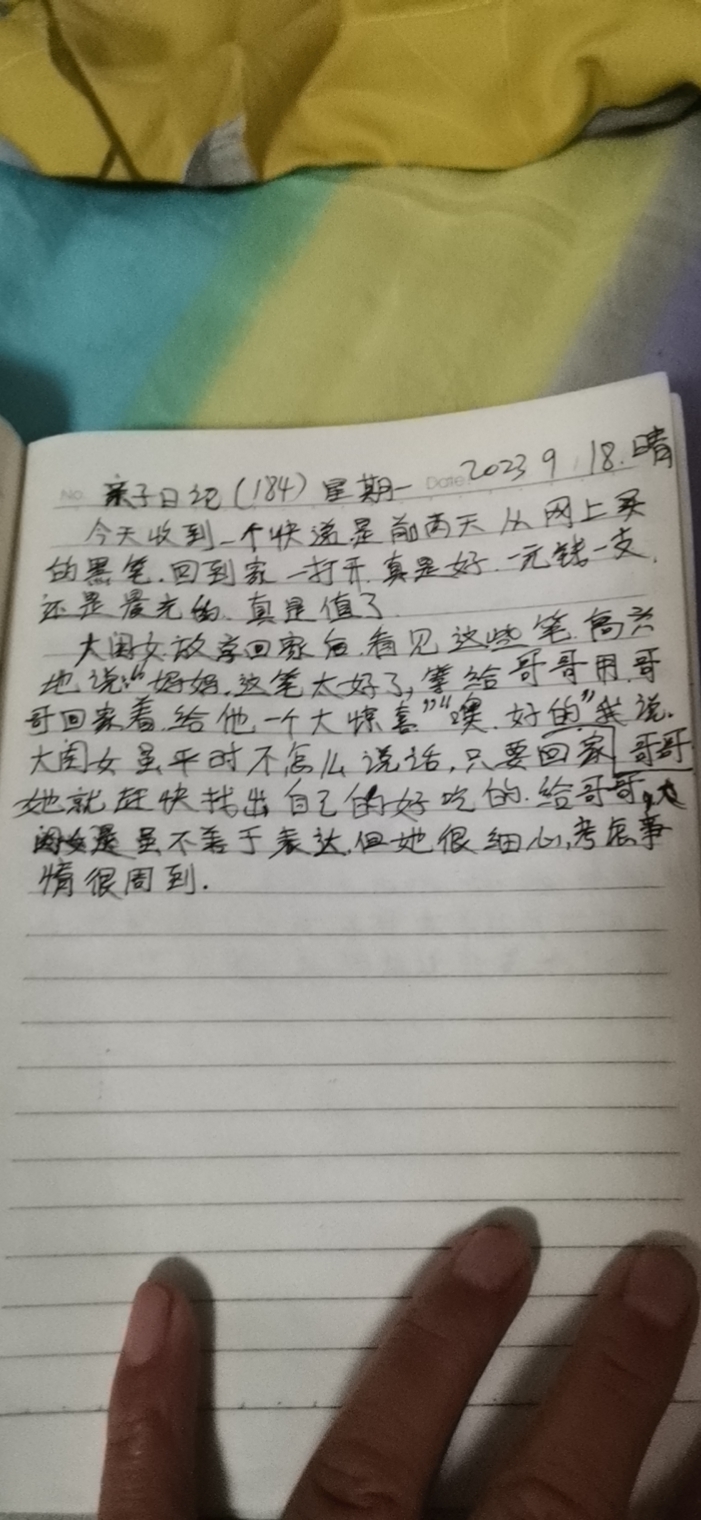 No. 亲子日记(184) 星期一 Date 2023 9 18. 晴
今天收到一个快递是前两天从网上买
的黑笔.回到家一打开.真是好.一元钱一支.
还是晨光的.真是值了
大闺女放学回家后.看见这些笔.高兴
地说:“妈妈.这笔太好了,拿给哥哥用.哥
哥回家着.给他一个大惊喜”“噢.好的”我说.
大闺女虽平时不怎么说话,只要回家哥哥
她就赶快找出自己的好吃的.给哥哥,大
闺女是虽不善于表达.但她很细心,考虑事
情很周到.